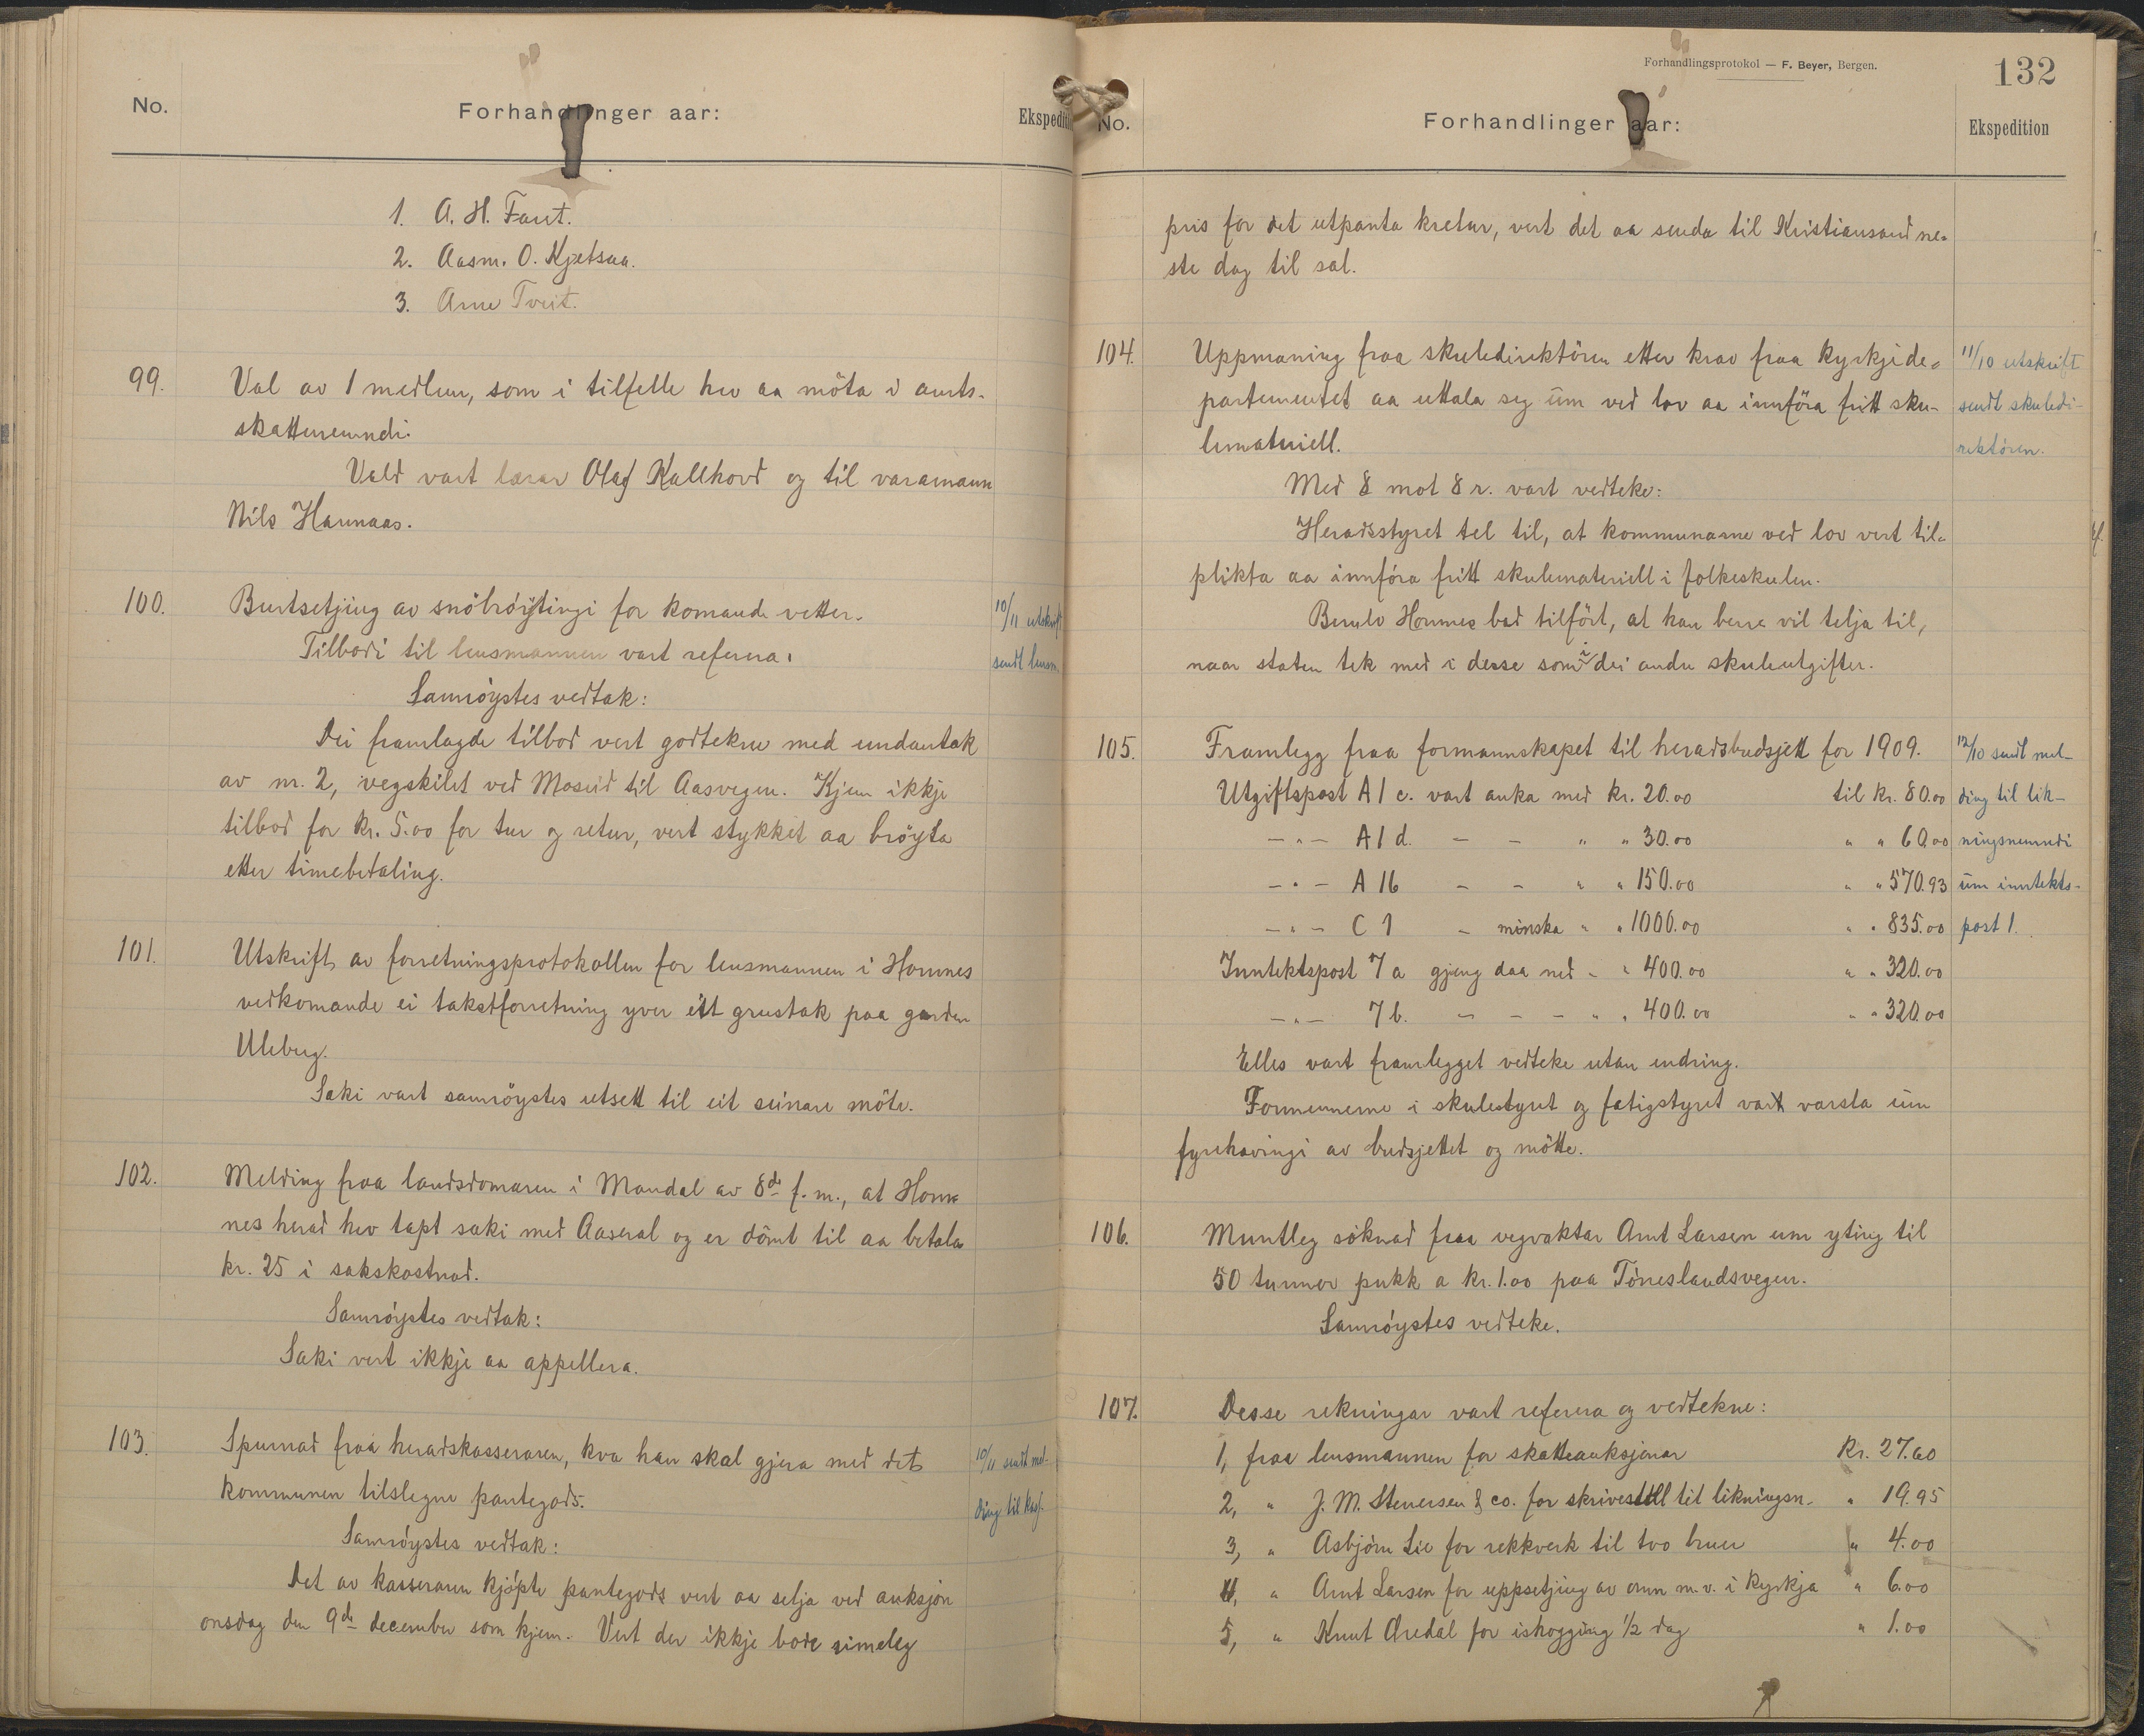 No.
Forhandlinger aar:
Ekspedit
1. A. H. Faret.
2. Aasm. O. Kjetsaa.
3. Arne Tveit.
99.
Val av 1 medlem, som i tilfelle hev aa möta i amts-
skattenemndi.
Vald vart lærar Olaf Kallhovd og til varamann
Nils Hannaas.
100.
Burtsetjing av snöbröytingi for komande vetter.
10/11 utskrift
Tilbodi til lensmannen vart referera.
sendt lensm.
Samröystes vedtak:
Dei framlagde tilbod vert godtekne med undantak
av nr. 2, vegskilet ved Moseid til Aasvegen. Kjem ikkje
tilbod for kr. 5.00 for tur og retur, vert stykket aa bröyta
etter timebetaling.
101.
Utskrift av forretningsprotokollen for lensmannen i Hornnes
vedkomande ei takstforretning yver eitt grustak paa garden
Uleberg.
Saki vart samröystes utsett til eit seinare möte.
102.
Melding fraa landsdomaren i Mandal av 8de f. m., at Horn-
nes herad hev tapt saki med Aaseral og er dömt til aa betala
kr. 25 i sakskostnad.
Samröystes vedtak:
Saki vert ikkje aa appellera.
103.
Spurnad fraa heradskasseraren, kva han skal gjera med det
10/11 sendt mel-
kommunen tilslegne pantegods.
ding til kass.
Samröystes vedtak:
Det av kasseraren kjöpte pantegods vert aa selja ved auksjon
onsdag den 9de december som kjem. Vert der ikkje bode rimeleg
Forhandlingsprotokol — F. Beyer, Bergen.
132
No.
Forhandlinger aar:
Ekspedition
pris for det utpanta kretur, vert det aa senda til Kristiansand ne-
ste dag til sal.
104.
Uppmaning fraa skuledirektören etter krav fraa kyrkjede-
11/10 utskrift
partementet aa uttala seg um ved lov aa innföra fritt sku-
sendt skuledi-
lemateriell.
rektören.
Med 8 mot 8 r. vart vedteke:
Heradsstyret tel til, at kommunarne ved lov vert til-
plikta aa innföra fritt skulemateriell i folkeskulen.
Hornnes bad tilfört, at han berre vil telja til,
naar staten tek med i desse som i dei andre skuleutgifter.
105.
Framlegg fraa formannskapet til heradsbudsjett for 1909.
12/10 sendt mel-
Utgiftspost A 1 c. vart auka med kr. 20.00 til kr. 80.00
ding til lik-
— " — A 1 d. — — " " 30.00 " " 60.00
ningsnemndi
— " — A 16 — — " " 150.00 " " 570.93
um inntekts-
— " — C 1 — minska " " 1000.00 " " 835.00
post 1.
Inntektspost 7 a gjeng daa ned " " 400.00 " " 320.00
— " — 7 b. — — — " " 400.00 " " 320.00
Elles vart framlegget vedteke utan endring.
Formennerne i skulestyret og fatigstyret vart varsla um
fyrehavingi av budsjettet og mötte.
106.
Muntleg söknad fraa vegvaktar Arnt Larsen um yting til
50 tunnor pukk a kr. 1.00 paa Töneslandsvegen.
Samröystes vedteke.
107.
Desse rekningar vart referera og vedtekne:
1, fraa lensmannen for skatteauksjonar Kr. 27.60
2, " J. M. Stenersen & co. for skrivestell til likningsn. " 19.95
3, " Asbjörn Lie for rekkverk til tvo bruer " 4.00
4, " Arnt Larsen for uppsetjing av omn m. v. i kyrkja " 6.00
5, " Knut Øredal for ishogging 1/2 dag " 1.00